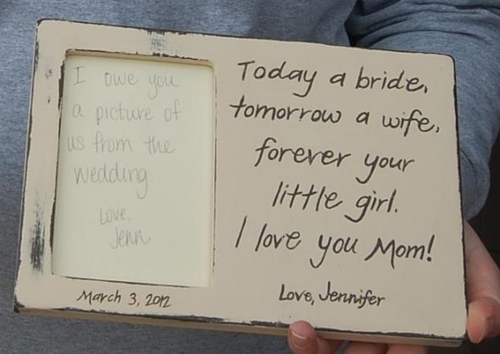 I owe you
a picture of
us from the
wedding
Love,
Jenn
March 3, 2012
Today a bride,
tomorrow a wife,
forever your
little girl.
I love you Mom!
Love, Jennifer